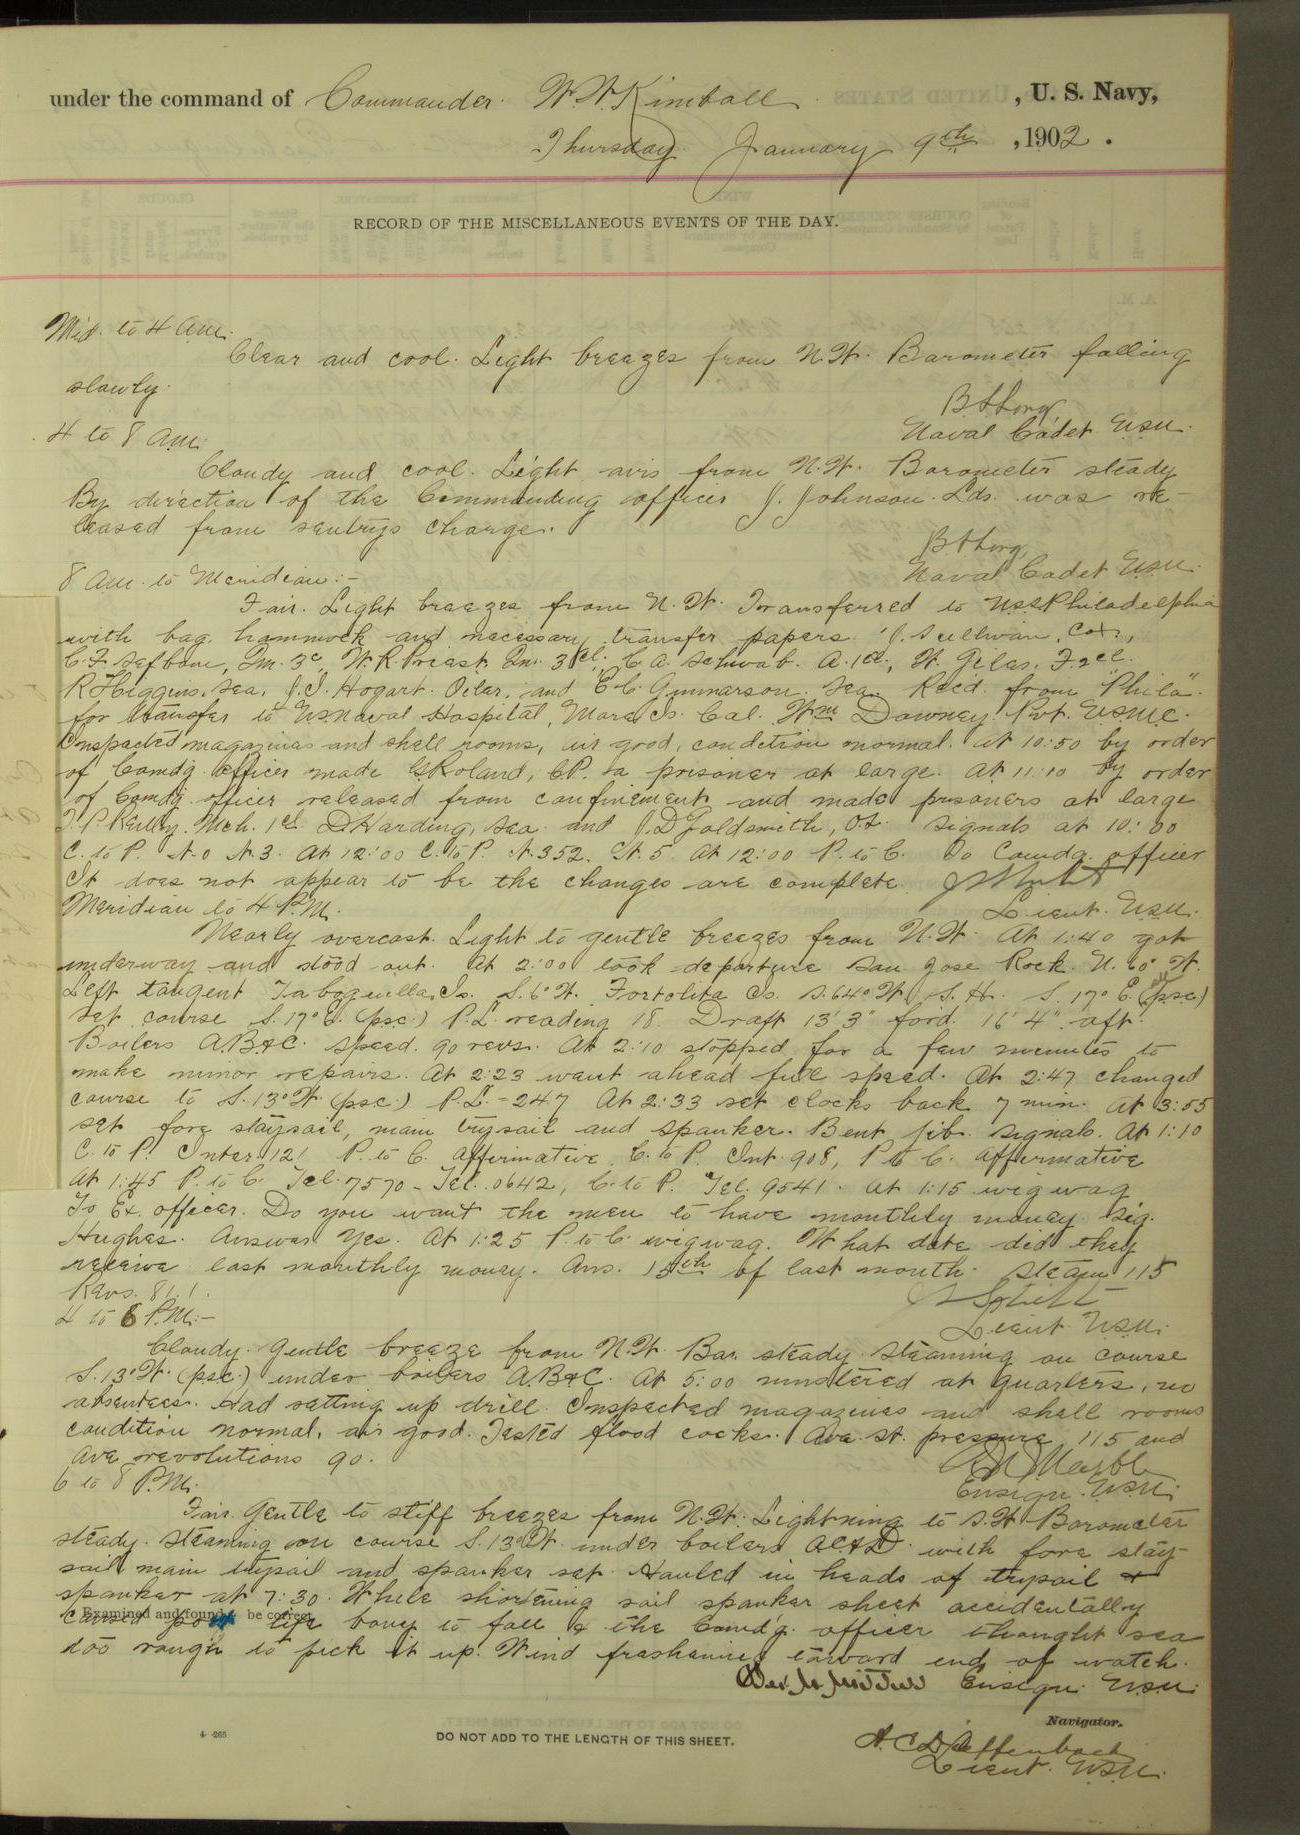 under the command of Commander W. W. Kimball, U. S. Navy,
Thursday January 9th, 1902.
RECORD OF THE MISCELLANEOUS EVENTS OF THE DAY.
Mid. to 4 a.m.
Clear and cool. Light breezes from N.W. Barometer falling
slowly.
Naval Cadet USN.
4 to 8 a.m.
Cloudy and cool. Light airs from N.W. Barometer steady
By direction of the Commanding officer J. Johnson. Lds. was re-
leased from sentrys charge.
Naval Cadet USN.
8 am. to Meridian:-
Fair. Light breezes from N.W. Transferred to USS Philadelphia
with bag, hammock and necessary transfer papers J. Sullivan, Cox.,
C.F. Qm. 3c, W.R. Priest. Qm. 3cl, C.A. Schwab. A. 1cl., W. Giles. F. 2cl.
R. Higgins. Sea. J.I. Hogart. Oiler. and E.C. Gunnarson. Sea. Rec'd. from "Phila".
for transfer to US Naval Hospital, Mare Is. Cal. Wm Downey Pvt. USMC.
Inspected magazines and shell rooms, air good, condition normal. At 10:50 by order
of Comdg. officer made G. Roland, CP. a prisoner at large. At 11:10 by order
of Comdg. officer released from confinement and made prisoners at large
T.P. Reilly. Mch. 1cl. D. Harding, Sea. and J.D. Goldsmith, O.S. Signals at 10:00
C. to P. N.O N.3. At 12:00 C. to P. N.352. W.5. At 12:00 P. to C. To Comdg. officer
It does not appear to be the changes are complete.
Lieut. USN.
Meridian to 4 P.M.
Nearly overcast. Light to gentle breezes from N.W. At 1:40 got
underway and stood out. At 2:00 took departure San Jose Rock N. 60° W.
Left tangent Taboguilla Is. S. 6° W. Fortolita Is. S. 64° W. S.H. S. 17° E. (psc)
Set course S. 17° E. (psc.) P.L. reading 18. Draft 13' 3" ford. 16' 4" aft.
Boilers A.B&C. Speed. 90 revs. At 2:10 stopped for a few minutes to
make minor repairs. At 2:23 went ahead full speed. At 2:47 changed
course to S. 13° W. (psc.) P.L. - 247 At 2:33 set clocks back 7 min. At 3:55
set fore staysail, main trysail and spanker. Bent jib. Signals. At 1:10
C. to P. Inter 121 P. to C. affirmative. C. to P. Int. 908, P to C. affirmative
At 1:45 P. to C. Tel. 7570 - Tel. 0642, C. to P. Tel. 9541. At 1:15 wigwag
To Ex. officer. Do you want the men to have monthly money. Sig.
Hughes. Answer Yes. At 1:25 P. to C. wigwag. What date did they
receive last monthly money. Ans. 15th of last month. Steam 115
Revs. 81.1.
Lieut. USN.
4 to 6 P.M:-
Cloudy. Gentle breeze from N.W. Bar. steady. Steaming on course
S. 13° W. (p.s.c.) under boilers A.B&C. At 5:00 mustered at quarters, no
absentees. Had setting up drill. Inspected magazines and shell rooms
condition normal, air good. Tested flood cocks. Ave. st. pressure 115 and
ave revolutions 90.
Ensign. USN.
6 to 8 P.M.
Fair. Gentle to stiff breezes from N.W. Lightning to S.W. Barometer
steady. Steaming on course S. 13° W. under boilers with fore stay-
sail main trysail and spanker set. Hauled in heads of trysail &
spanker at 7:30. While shortening sail spanker sheet accidentally
Examined and found to be correct.
caused port life bouy to fall & the Comd'g. officer thought sea
too rough to pick it up. Wind freshening toward end of watch.
Ensign. USN.
Navigator.
A.C. Diffenbach
Lieut. USN.
4-265
DO NOT ADD TO THE LENGTH OF THIS SHEET.